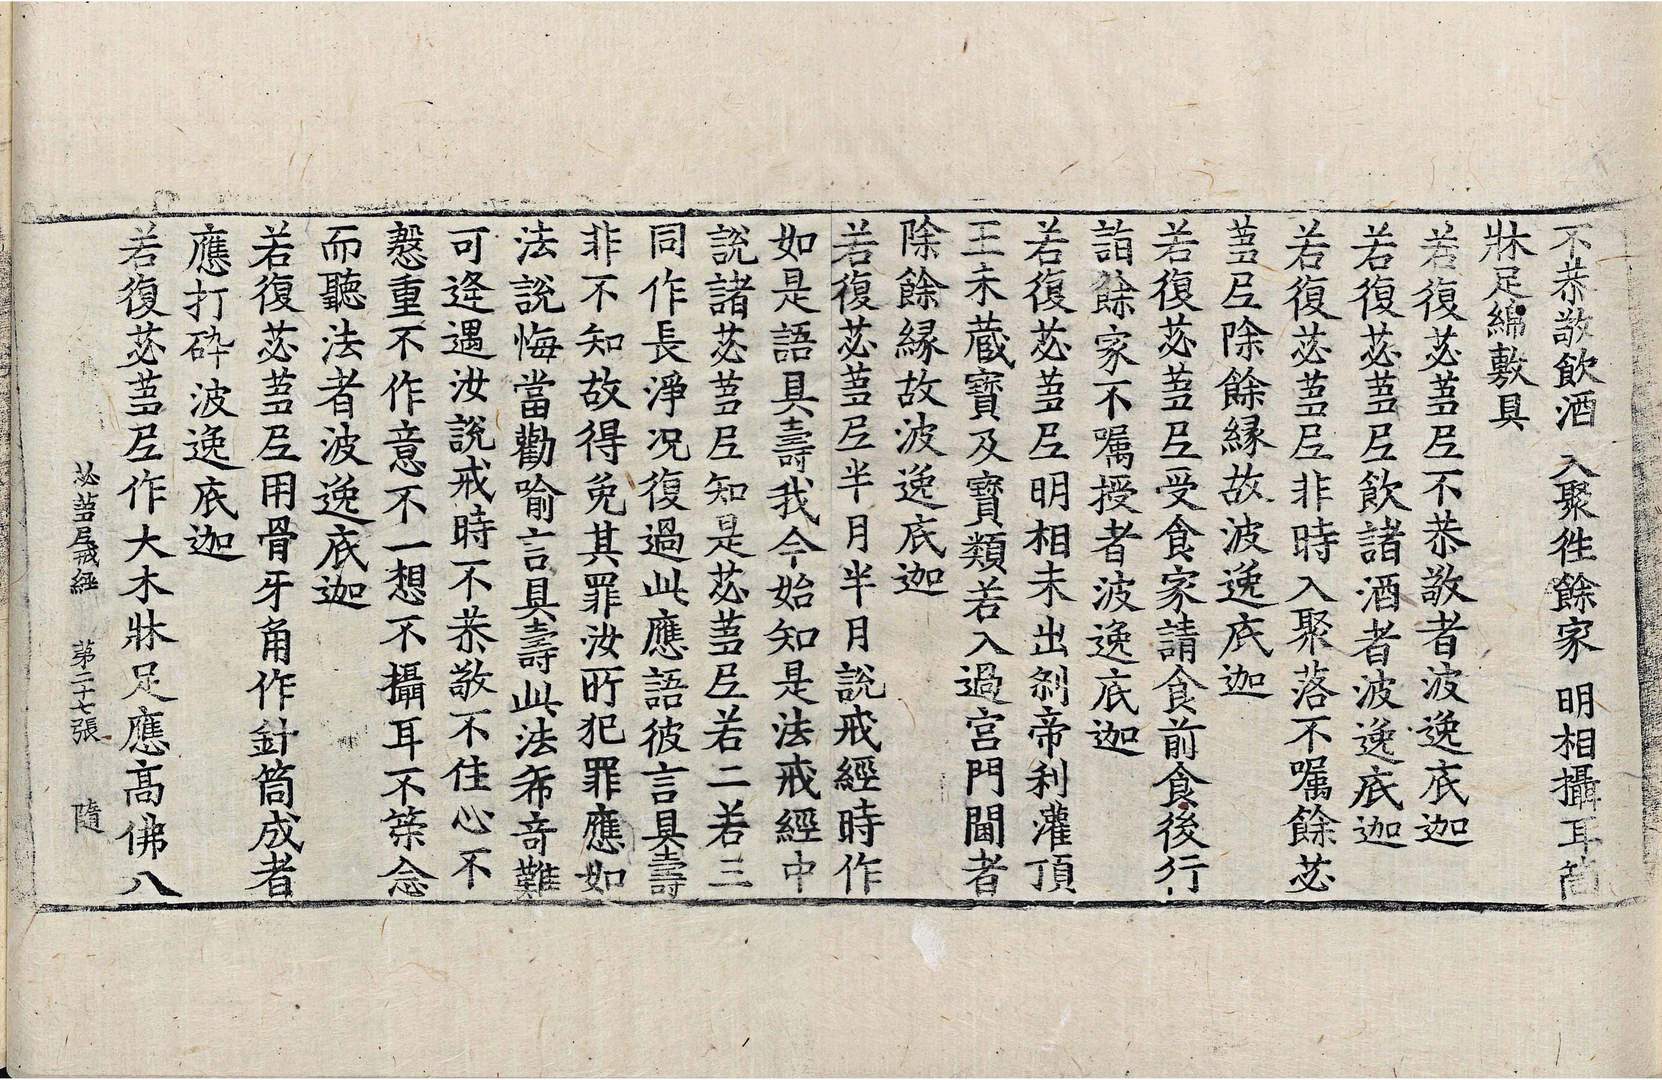 不恭敬飲酒 入聚徃餘家 明相攝耳筒
牀足綿敷具
若復苾蒭尼不恭敬者波逸底迦
若復苾蒭尼飲諸酒者波逸底迦
若復苾蒭尼非時入聚落不囑餘苾
蒭尼除餘縁故波逸底迦
若復苾蒭尼受食家請食前食後行
詣餘家不囑授者波逸底迦
若復苾蒭尼明相未出刹帝利灌頂
王未蔵寶及寶類若入過宮門閫者
除餘縁故波逸底迦
若復苾蒭尼半月半月說戒經時作
如是語具壽我今始知是法戒經中
說諸苾蒭尼知是苾蒭尼若二若三
同作長淨况復過此應語彼言具壽
非不知故得免其罪汝所犯罪應如
法說悔當勸喻言具壽此法希竒難
可逢遇汝說戒時不恭敬不住心不
慇重不作意不一想不攝耳不䇿念
而聽法者波逸底迦
若復苾蒭尼用骨牙角作針筒成者
應打碎波逸底迦
苾蒭尼戒經 第二十七張 隨
若復苾蒭尼作大木牀足應髙佛八